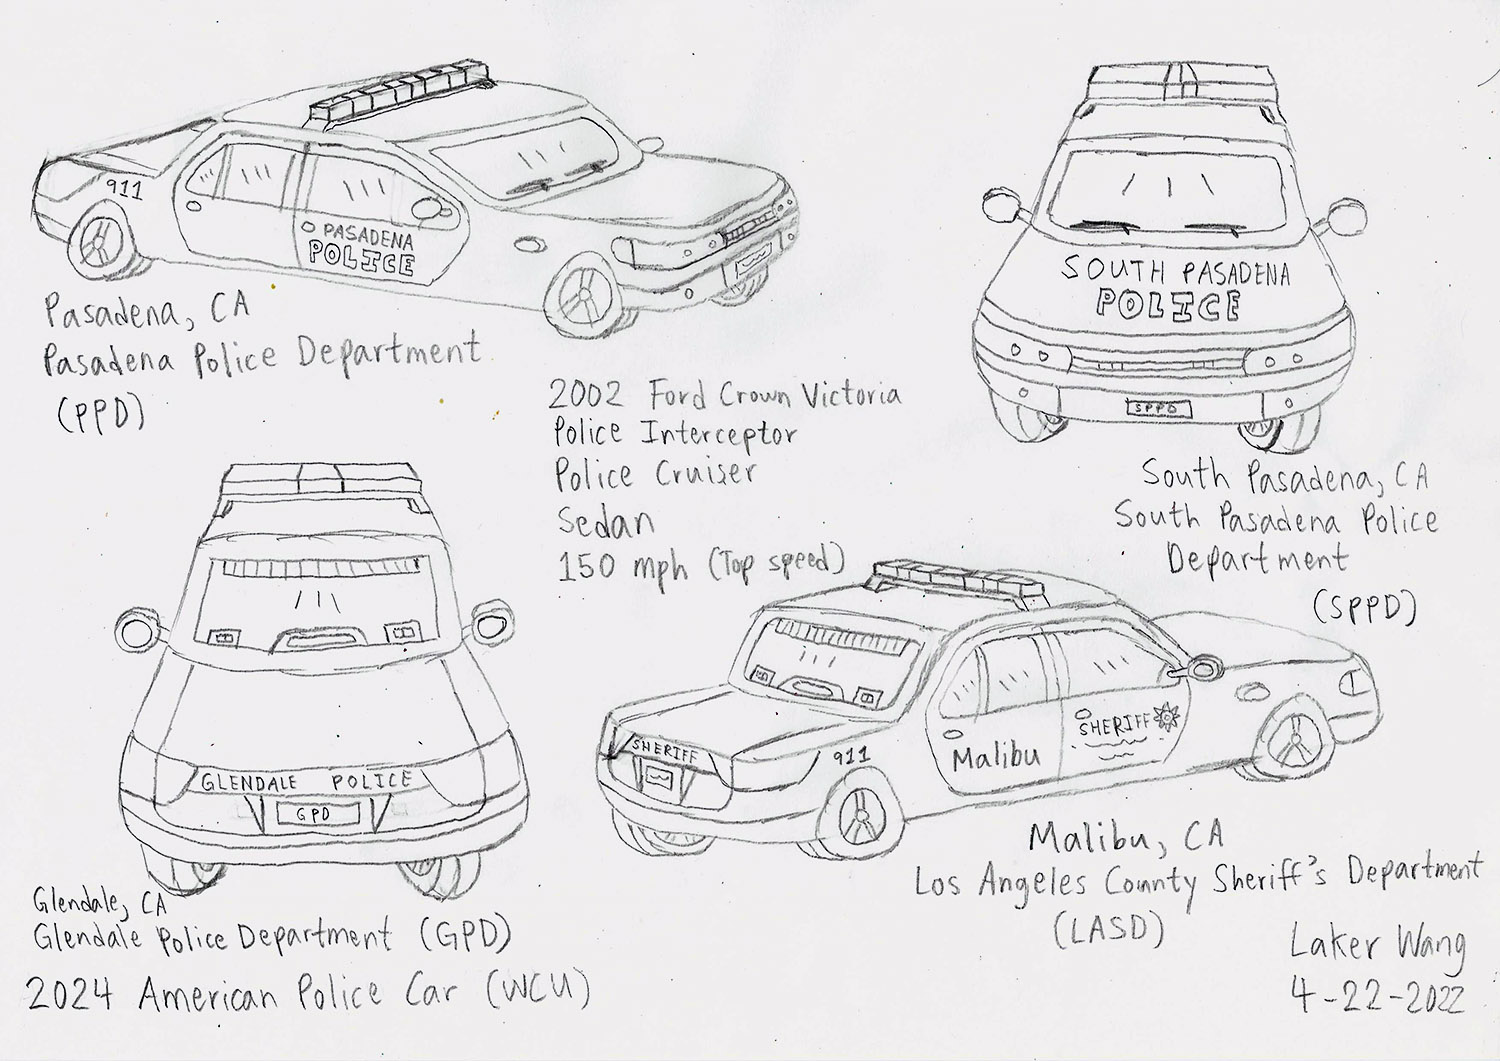 911
PASADENA
POLICE
Pasadena, CA
Pasadena Police Department
(PPD)
SOUTH PASADENA
POLICE
SPPD
South Pasadena, CA
South Pasadena Police
Department
(SPPD)
2002 Ford Crown Victoria
Police Interceptor
Police Cruiser
Sedan
150 mph (Top speed)
GLENDALE POLICE
GPD
Glendale, CA
Glendale Police Department (GPD)
2024 American Police Car (WCU)
SHERIFF
911
Malibu
SHERIFF
Malibu, CA
Los Angeles County Sheriff's Department
(LASD)
Laker Wang
4-22-2022